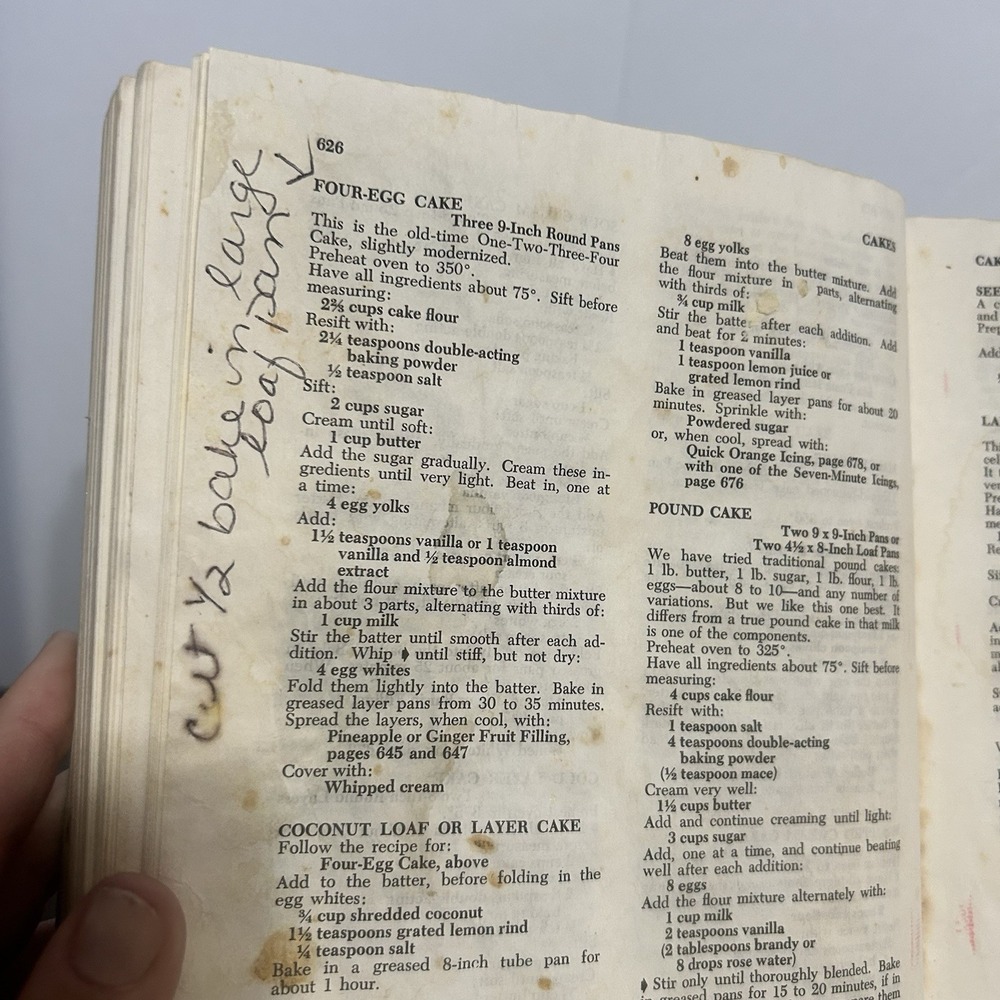 cut 1/2 bake in large
loaf pan
626
FOUR-EGG CAKE
Three 9-Inch Round Pans
This is the old-time One-Two-Three-Four
Cake, slightly modernized.
Preheat oven to 350°.
Have all ingredients about 75°. Sift before
measuring:
2⅔ cups cake flour
Resift with:
2¼ teaspoons double-acting
baking powder
½ teaspoon salt
Sift:
2 cups sugar
Cream until soft:
1 cup butter
Add the sugar gradually. Cream these in-
gredients until very light. Beat in, one at
a time:
4 egg yolks
Add:
1½ teaspoons vanilla or 1 teaspoon
vanilla and ½ teaspoon almond
extract
Add the flour mixture to the butter mixture
in about 3 parts, alternating with thirds of:
1 cup milk
Stir the batter until smooth after each ad-
dition. Whip ♦ until stiff, but not dry:
4 egg whites
Fold them lightly into the batter. Bake in
greased layer pans from 30 to 35 minutes.
Spread the layers, when cool, with:
Pineapple or Ginger Fruit Filling,
pages 645 and 647
Cover with:
Whipped cream
COCONUT LOAF OR LAYER CAKE
Follow the recipe for:
Four-Egg Cake, above
Add to the batter, before folding in the
egg whites:
¾ cup shredded coconut
1½ teaspoons grated lemon rind
¼ teaspoon salt
Bake in a greased 8-inch tube pan for
about 1 hour.
CAKES
8 egg yolks
Beat them into the butter mixture. Add
the flour mixture in parts, alternating
with thirds of:
¾ cup milk
Stir the batter after each addition. Add
and beat for 2 minutes:
1 teaspoon vanilla
1 teaspoon lemon juice or
grated lemon rind
Bake in greased layer pans for about 20
minutes. Sprinkle with:
Powdered sugar
or, when cool, spread with:
Quick Orange Icing, page 678, or
with one of the Seven-Minute Icings,
page 676
POUND CAKE
Two 9 x 9-Inch Pans or
Two 4½ x 8-Inch Loaf Pans
We have tried traditional pound cakes:
1 lb. butter, 1 lb. sugar, 1 lb. flour, 1 lb.
eggs—about 8 to 10—and any number of
variations. But we like this one best. It
differs from a true pound cake in that milk
is one of the components.
Preheat oven to 325°.
Have all ingredients about 75°. Sift before
measuring:
4 cups cake flour
Resift with:
1 teaspoon salt
4 teaspoons double-acting
baking powder
(½ teaspoon mace)
Cream very well:
1½ cups butter
Add and continue creaming until light:
3 cups sugar
Add, one at a time, and continue beating
well after each addition:
8 eggs
Add the flour mixture alternately with:
1 cup milk
2 teaspoons vanilla
(2 tablespoons brandy or
8 drops rose water)
♦ Stir only until thoroughly blended. Bake
in greased pans for 15 to 20 minutes, if in